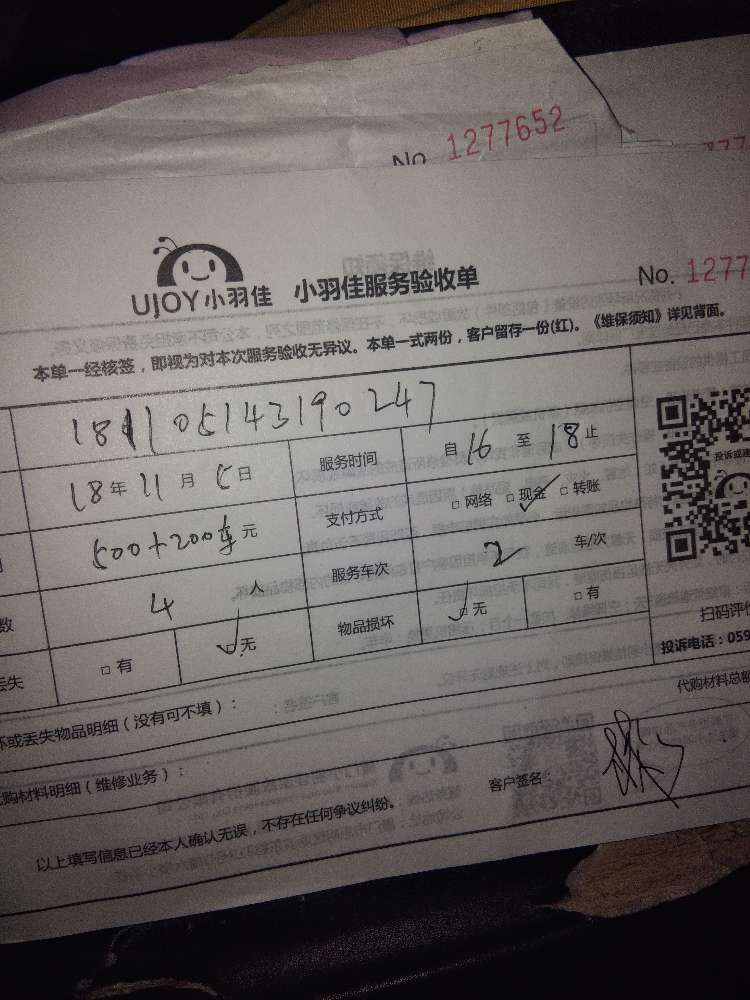 No 1277652
UJOY小羽佳 小羽佳服务验收单
No. 1277
本单一经核签，即视为对本次服务验收无异议。本单一式两份，客户留存一份(红)。《维保须知》详见背面。
181105143190247
18年11月5日 服务时间 自16至18止
500+200车元 支付方式 □网络 □现金 □转账
数 4人 服务车次 2 车/次
丢失 □有 □无 物品损坏 □无 □有
投诉或建
扫码评价
投诉电话：059
坏或丢失物品明细（没有可不填）：
代购材料总额
购材料明细（维修业务）：
客户签名：
以上填写信息已经本人确认无误，不存在任何争议纠纷。